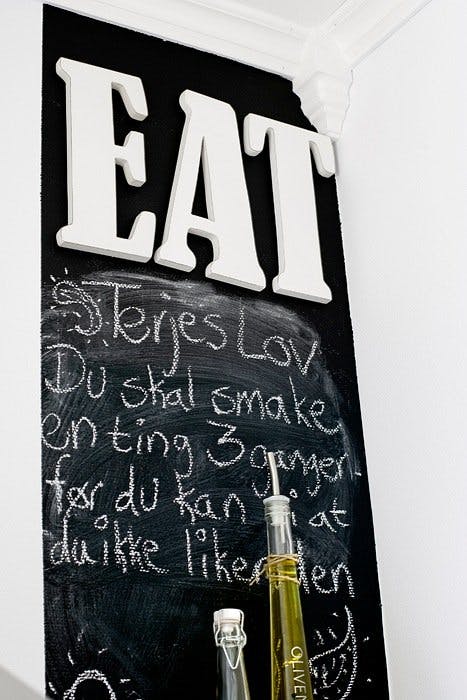 EAT
Terjes Lov
Du skal smake
en ting 3 ganger
før du kan at
du ikke liker den
OLIVEN